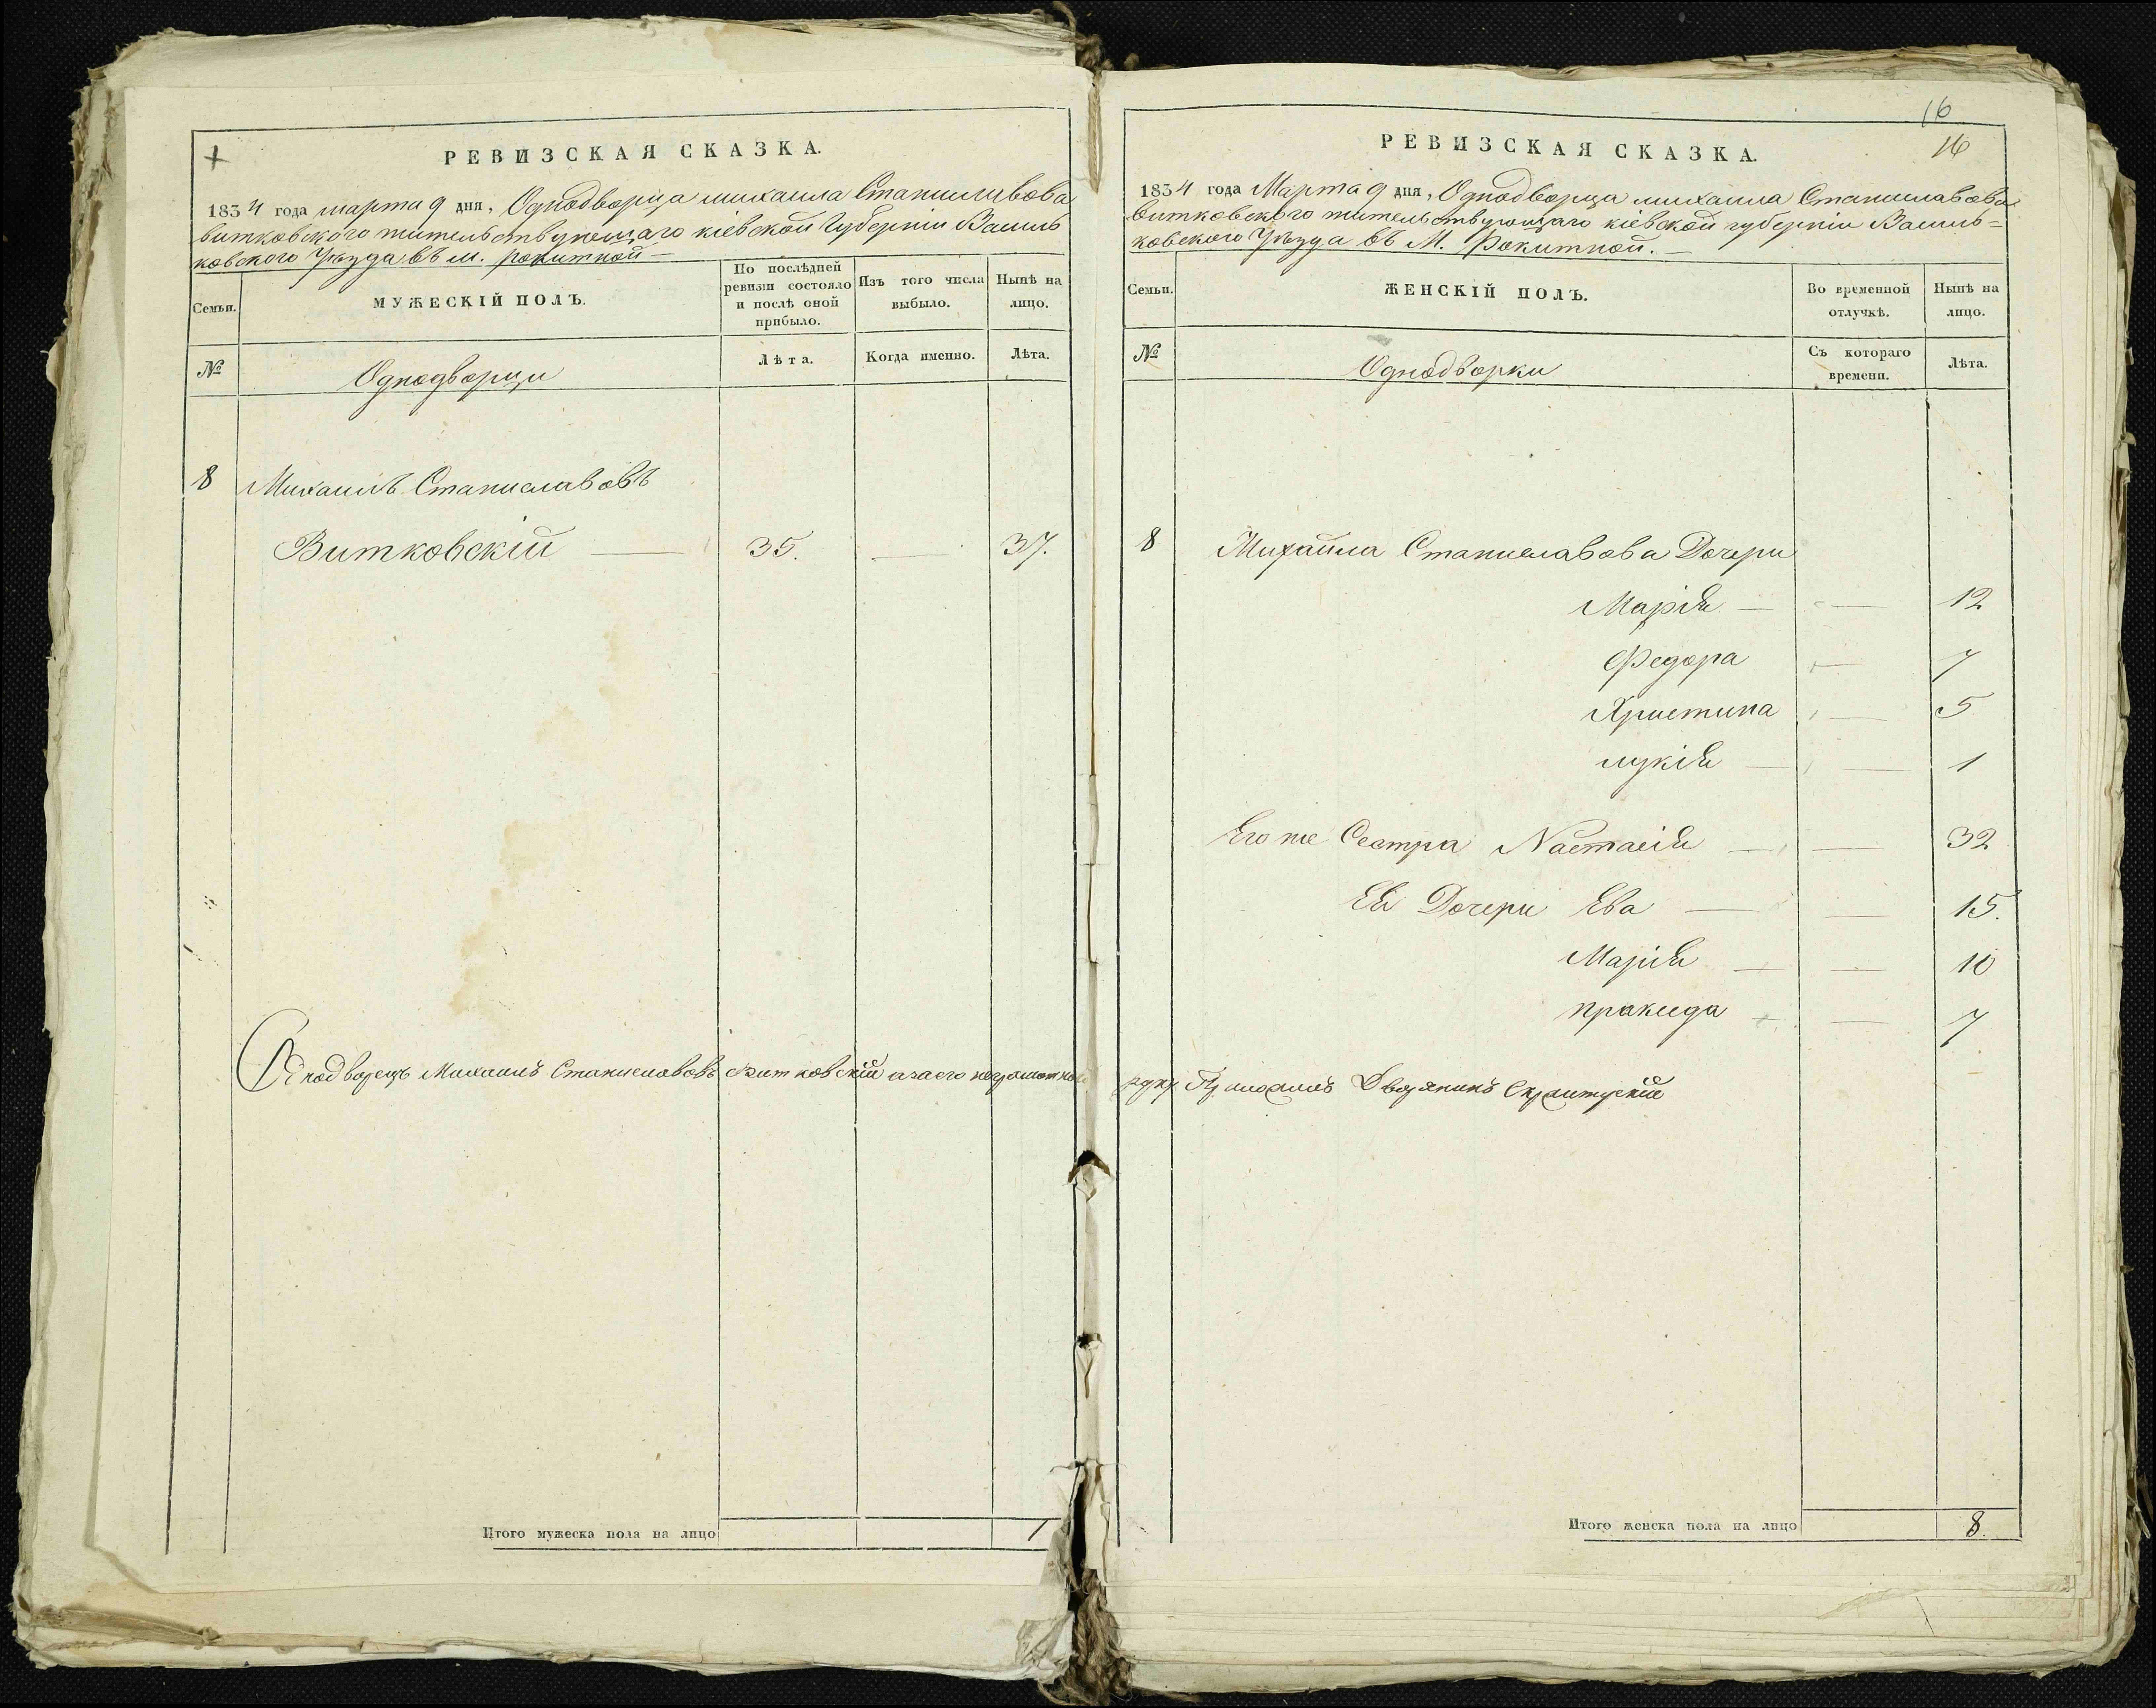 РЕВИЗСКАЯ СКАЗКА.
1834 года марта 9 дня, Однодворца михаила Станиславова
витковского жительствующаго кіевской Губерніи Василь
ковского Уѣзда въ м. рокитной —
Семьи.
МУЖЕСКІЙ ПОЛЪ.
По послѣдней ревизіи состояло и послѣ оной прибыло.
Изъ того числа выбыло.
Нынѣ на лицо.
№
Однодворцы
Лѣта.
Когда именно.
Лѣта.
8 Михаилъ Станиславовъ
Витковскій — 35. — 37.
Однодворецъ Михаилъ Станиславовъ Витковскій а за его неграмотно
Итого мужеска пола на лицо 1
16
16
РЕВИЗСКАЯ СКАЗКА.
1834 года Марта 9 дня, Однодворца михаила Станиславова
Витковского жительствующаго кіевской губерніи Василь=
ковского Уѣзда въ М. Рокитной. —
Семьи.
ЖЕНСКІЙ ПОЛЪ.
Во временной отлучкѣ.
Нынѣ на лицо.
№
Однодворки
Съ котораго времени.
Лѣта.
8 Михаила Станиславова Дочери
Марія — — 12
Федора — 7
Христина — 5
лукія — — 1
Его же Сестра Настасія — — 32
Ея Дочери Ева — — 15.
Марія — — 10
пракседа — — 7
Дворянинъ
Итого женска пола на лицо 8.